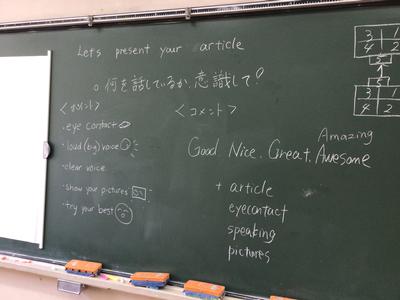 Let's present your article
○ 何を話しているか、意識して!
<ポイント>
・eye contact
・loud (big) voice
・clear voice
・show your pictures
・try your best
<コメント>
Amazing
Good Nice. Great. Awesome
+ article
eyecontact
speaking
pictures
3 1
4 2
3 1
4 2